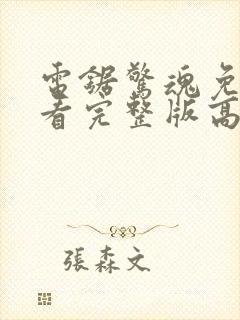 電鋸驚魂免
看完整版高
張森文